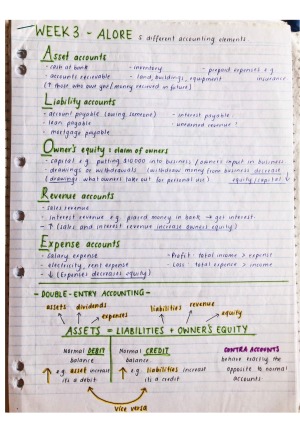 WEEK 3 - ALORE 5 different accounting elements
Asset accounts
- cash at bank - inventory - prepaid expenses e.g.
- accounts recievable - land, buildings, equipment insurance
(↑ those who owe you/money received in future)
Liability accounts
- account payable (owing someone) - interest payable
- loan payable - unearned revenue !
- mortgage payable
Owner's equity : claim of owners
- capital e.g. putting $10 000 into business / owners input in business
- drawings or withdrawals (withdraw money from business decrease
(drawings: what owners take out for personal use) equity/capital ↓
Revenue accounts
- sales revenue
- interest revenue e.g. placed money in bank → get interest
- ↑ (sales and interest revenue increase owners equity)
Expense accounts
- salary expense - Profit: total income > expense
- electricity, rent expense - Loss: total expense > income
- ↓ (Expenses decreases equity)
- DOUBLE-ENTRY ACCOUNTING -
assets dividends expenses liabilities revenue equity
ASSETS = LIABILITIES + OWNER'S EQUITY
Normal DEBIT Normal CREDIT CONTRA ACCOUNTS
balance balance behave exactly the
↑ e.g. asset increase ↑ e.g. liabilities increase opposite to normal
its a debit its a credit accounts.
vice versa